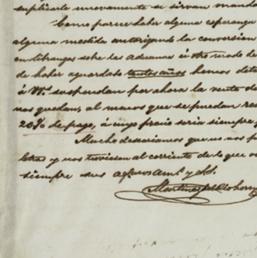 suplicarle nuevamente se sirvan mandar
Como parece haber alguna esperanza
alguna medida autorizando la conversion
en libranzas sobre las aduanas ú otro modo de
de haber aguardado tantos años hemos
á VMs. suspendan por ahora la venta de
nos quedan, al menos que se puedan
20% de pago, á cuyo precio seria siempre
Mucho desearíamos que nos
y nos tuviesen al corriente de lo que
siempre sus
Martinez del